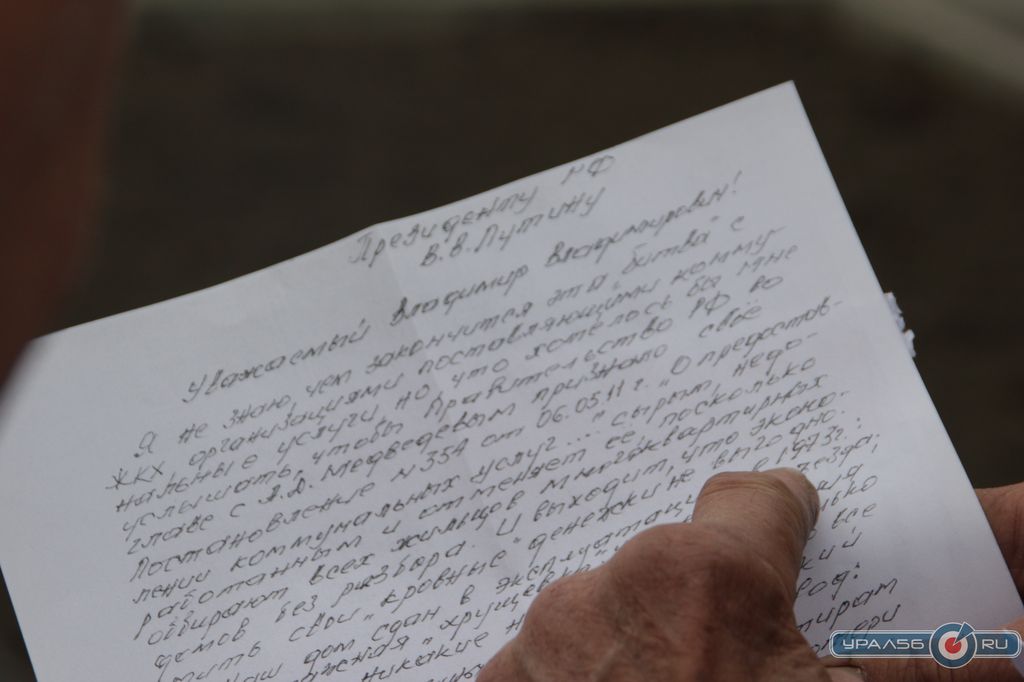 Президенту РФ
В.В.Путину
Уважаемый Владимир Владимирович!
Я не знаю, чем закончится эта „битва" с
ЖКХ организациями поставляющими комму-
нальные услуги, но что хотелось бы мне
услышать, чтобы Правительство РФ во
главе с Л.Д. Медведевым признало своё
Постановление №354 от 06.05.11 г. „О предостав-
лении коммунальных услуг..." сырым, недо-
работанным и отменяет её, поскольку
обирают всех жильцов многоквартирных
домов без разбора. И выходит, что эконо-
мить свои „кровные" денежки не выгодно.
Наш дом сдан в эксплуатацию в 1973г.:
"хрущевка"
никакие
УРАЛ56 RU